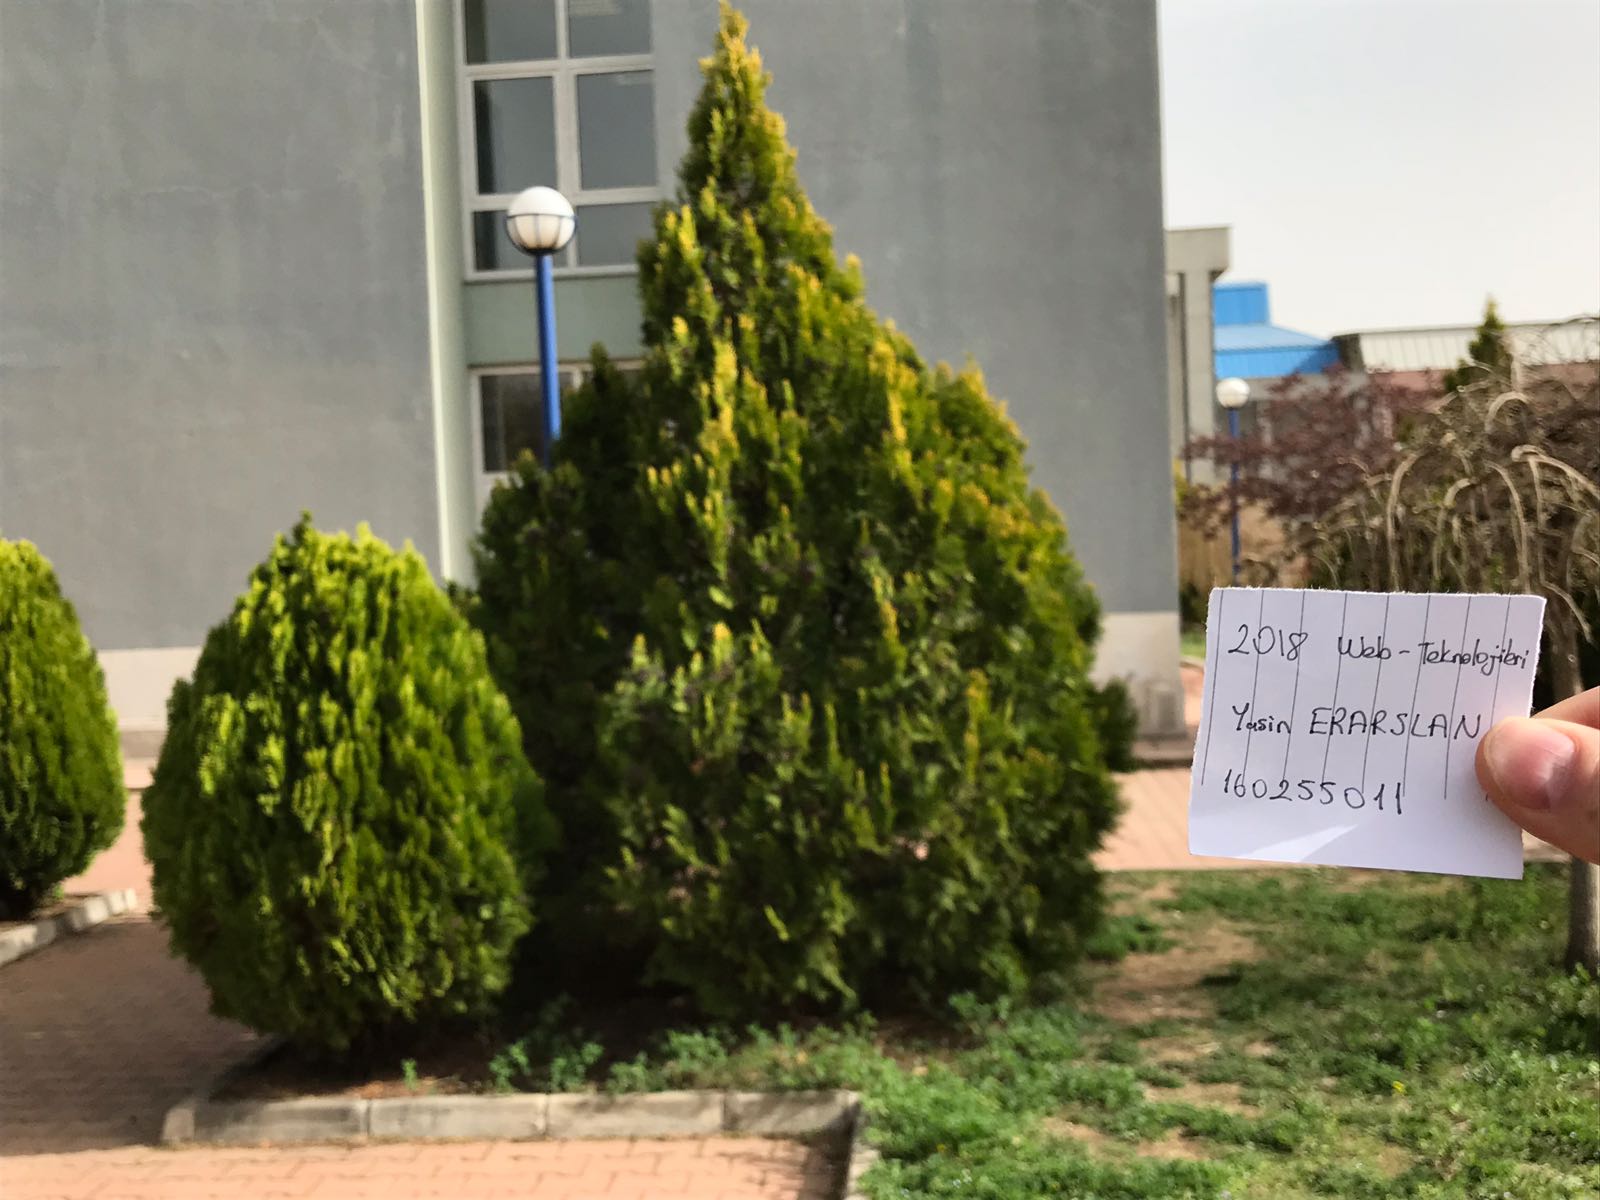 2018 Web-Teknolojileri
Yasin ERARSLAN
160255011